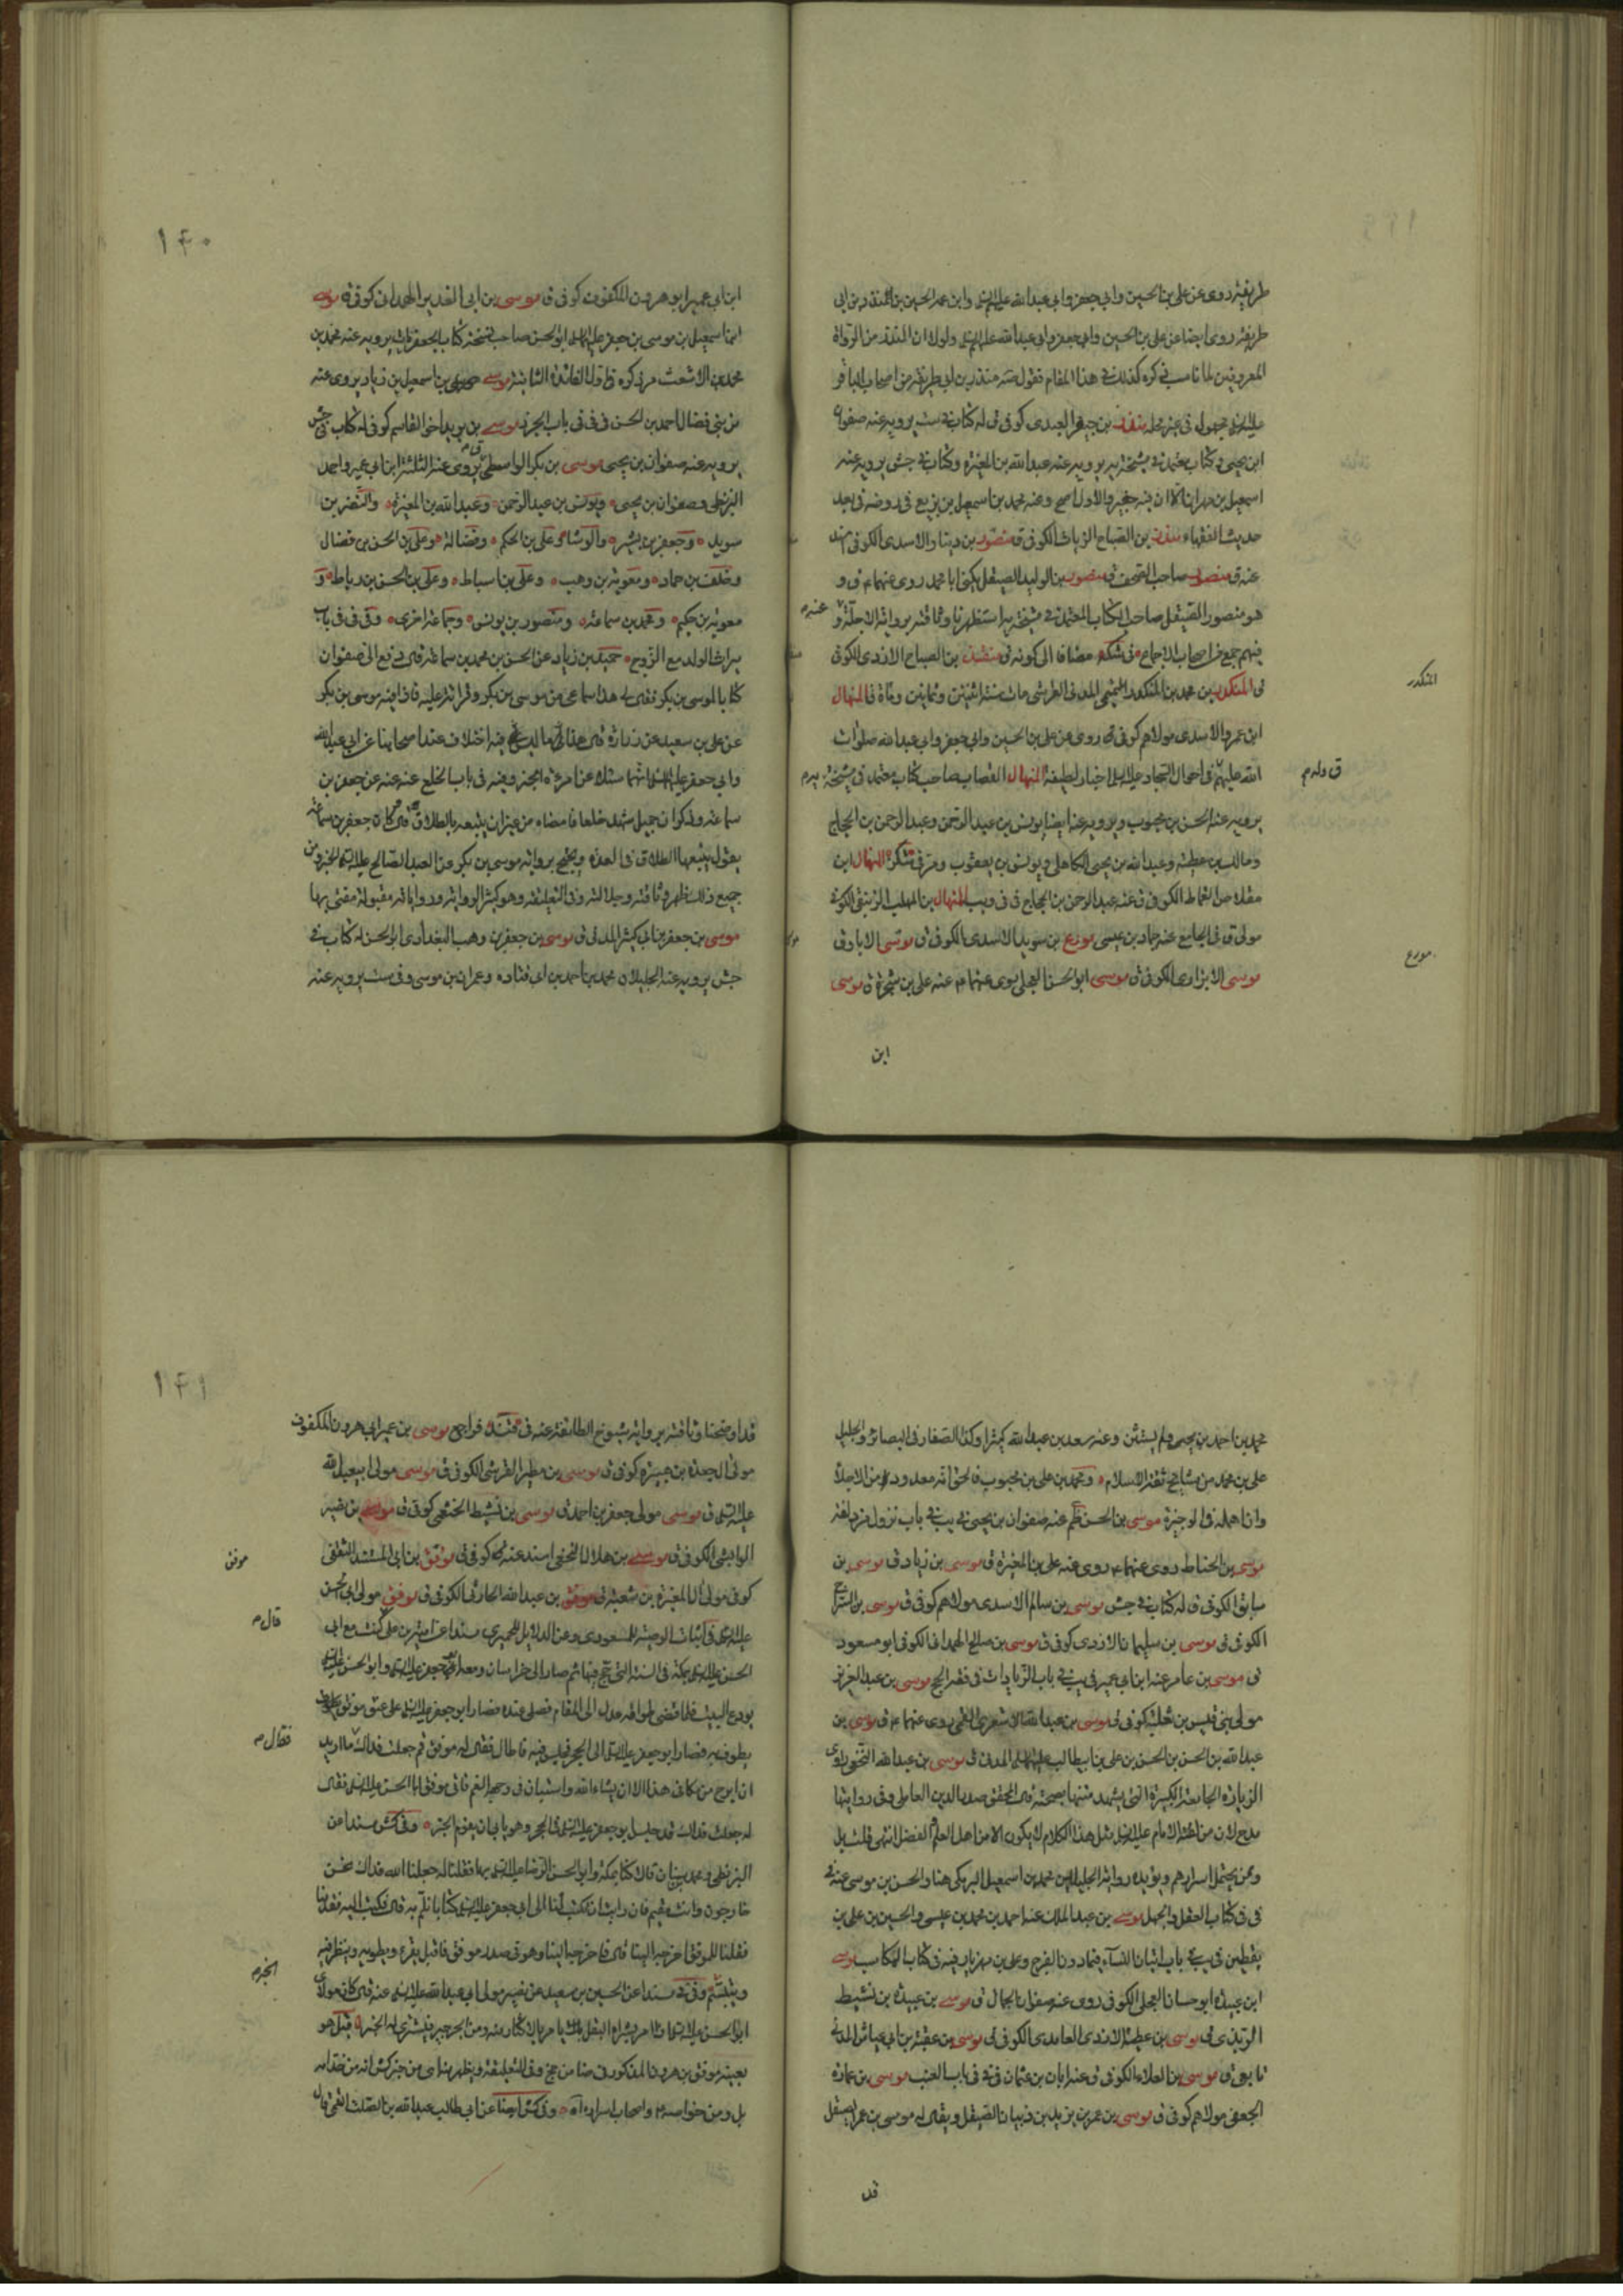 طريفة روى عن علي بن الحسين وابي جعفر وابي عبد الله عليهم السلم وابن عمه الحسين بن المنذر بن ابي
طريفة روى ايضا عن علي بن الحسين وابي جعفر وابي عبد الله عليهم السلم ولولا ان المنذر من الرواة
المعروفين لما ناسب ذكره كذلك في هذا المقام فقول منذر بن ابي طريفة من اصحاب الباقر
عليه السلم مجهول في غير محله منذر بن جيفر العبدي كوفي ق له كتاب في ست يرويه عنه صفوان
ابن يحيى وكتاب معتمد في مشيخة يه يرويه عنه عبد الله بن المغيرة وكتاب في جش يرويه عنه
اسمعيل بن مهران الا ان فيه جفير والاول اصح وعنه محمد بن اسمعيل بن بزيع في روضة في بعد
حديث الفقهاء منذر بن الصباح الزيات الكوفي ق منصور بن دينار الاسدي الكوفي اسند
عنه ق منصور صاحب الصحف ق منصور بن الوليد الصيقل يكنى ابا محمد روى عنهما ع ق و
هو منصور الصيقل صاحب الكتاب المعتمد في مشيخة يه استظهرنا وثاقته برواية الاجلة و
عنه م
فيهم جمع من اصحاب الاجماع في شكه مضافا الى كونه في منشد بن الصباح الازدي الكوفي
ق المنكدر بن محمد بن المنكدر التيمي المدني القرشي مات سنة اثنتين وثمانين ومأة ق المنهال
المنكدر
ابن عمرو الاسدي مولاهم كوفي روى عن علي بن الحسين وابي جعفر وابي عبد الله صلوات
الله عليهم في احوال السجاد عليه السلم اخبار لطيفة المنهال القصاب صاحب كتاب معتمد في مشيخة
ق وله م
يه م
يرويه عنه الحسن بن محبوب ويرويه عنه ايضا يونس بن عبد الرحمن وعبد الرحمن بن الحجاج
ومالك بن عطية وعبد الله بن يحيى الكاهلي ويونس بن يعقوب ومر في شكر المنهال ابن
مقلاص القماط الكوفي ق عنه عبد الرحمن بن الحجاج في في ويب المنهال بن المهلب الكوفي
مولى ق في الجامع عنه حماد بن عيسى مورع بن سويد الاسدي الكوفي ق موسى الابار ق
مورع
موسى الابزاري الكوفي ق موسى ابو الحسن العجلي روى عنهما ع عنه علي بن شجرة ق موسى
ابن
١٤٠
ابن ابي عمير ابو هرون المكفوف كوفي ق موسى بن ابي الغدير الهمداني كوفي ق موسى
ابن اسمعيل بن موسى بن جعفر عليهما السلم ابو الحسن صاحب نسخة كتاب الجعفريات يرويه عنه محمد بن
محمد بن الاشعث مر ذكره في الفائدة الثانية موسى بن اسمعيل بن زياد يروى عنه
من بني فضال احمد بن الحسن في في في باب الجزر موسى بن بريد اخو القاسم كوفي له كتاب في جش
يرويه عنه صفوان بن يحيى موسى بن بكر الواسطي يروى عنه الثلثة ابن ابي عمير واحمد
البزنطي وصفوان بن يحيى ويونس بن عبد الرحمن وعبد الله بن المغيرة والنضر بن
سويد وجعفر بن بشير والوشاء وعلي بن الحكم وفضالة وعلي بن الحسن بن فضال
وخلف بن حماد ومعوية بن وهب وعلي بن اسباط وعلي بن الحسن بن رباط و
معوية بن حكيم ومحمد بن سماعة ومنصور بن يونس وجماعة اخرى وفي في في باب
ميراث الولد مع الزوج حميد بن زياد عن الحسن بن محمد بن سماعة قال دفع الى صفوان
كتابا لموسى بن بكر فقال لي هذا سماعي من موسى بن بكر وقرأته عليه فاذا فيه موسى بن بكر
عن علي بن سعيد عن زرارة قال هذا مما ليس فيه اختلاف عند اصحابنا عن ابي عبد الله
وابي جعفر عليهما السلم انهما سئلا عن امرءة الخبر وفيه في باب الخلع عنه عن جعفر بن
سماعة وذكر ان جميل شهد خلعا فامضاه من غير ان يتبعه بالطلاق قال وكان جعفر بن سماعة
يقول يتبعها الطلاق في العدة ويحتج برواية موسى بن بكر عن العبد الصالح عليه السلم الخبر ومن
جميع ذلك ظهر وثاقته وجلالته وفي التعليقة وهو كثير الرواية ورواياته مقبولة مفتى بها
موسى بن جعفر بن ابي كثير المدني ق موسى بن جعفر بن وهب البغدادي ابو الحسن له كتاب في
جش يرويه عنه الجليلان محمد بن احمد بن ابي قتادة وعمران بن موسى وفي ست يرويه عنه
محمد بن احمد بن يحيى ولم يستثن وعنه سعد بن عبد الله كثيرا وكذا الصفار في البصائر والجليل
علي بن محمد من مشايخ ثقة الاسلام ومحمد بن علي بن محبوب فالحق انه معدود من الاجلاء
وان اهمله في الوجيزة موسى بن الحسن ظم عنه صفوان بن يحيى في يب في باب نزول مزدلفة
موسى بن الحناط روى عنهما ع روى عنه علي بن المغيرة ق موسى بن زياد ق موسى بن
سابق الكوفي ق له كتاب في جش موسى بن سالم الاسدي مولاهم كوفي ق موسى بن السراج
الكوفي ق موسى بن سليمان الازدي كوفي ق موسى بن صالح الهمداني الكوفي ابو مسعود
ق موسى بن عامر عنه ابن ابي عمير في يب في باب الزيادات في فقه الحج موسى بن عبد العزيز
مولى بني قيس بن ثعلبة كوفي ق موسى بن عبد الله الاشعري القمي روى عنهما ع ق موسى بن
عبد الله بن الحسن بن الحسن بن علي بن ابيطالب عليهما السلم المدني ق موسى بن عبد الله النخعي راوي
الزيارة الجامعة الكبيرة التي يشهد متنها بصحته قال المحقق صدر الدين العاملي وفي روايتها
مدح لان من اعطاه الامام عليه السلم مثل هذا الكلام لا يكون الا من اهل العلم والفضل انتهى قلت بل
وممن يحتمل اسرارهم ويؤيده رواية الجليلين محمد بن اسمعيل البرمكي هنا والحسن بن موسى عنه في
في في كتاب العقل والجهل موسى بن عبد الملك عنه احمد بن محمد بن عيسى والحسين بن علي بن
يقطين في يب في باب اتيان النساء فيما دون الفرج وعلي بن مهزيار فيه في كتاب المكاسب موسى
ابن عبيدة ابو حسان العجلي الكوفي روى عنه صفوان الجمال ق موسى بن عبيدة بن نشيط
الربذي ق موسى بن عطية الازدي الغامدي الكوفي ق موسى بن عقبة بن ابي عياش المدني
تابعي ق موسى بن العلاء الكوفي ق عنه ابان بن عثمان في في باب العنب موسى بن عمارة
الجعفي مولاهم كوفي ق موسى بن عمر بن يزيد بن ذبيان الصيقل ويقال له موسى بن عمر الصيقل
قد
١٤١
قد اوضحنا وثاقته برواية شيوخ الطائفة عنه في فراجع موسى بن عمير ابي هرون المكفوف
مولى ال جعدة بن هبيرة كوفي ق موسى بن مطير القرشي الكوفي ق موسى مولى ابي عبد الله
عليه السلم ق موسى مولى جعفر بن احمد ق موسى بن نشيط الخثعمي كوفي ق موسى بن
الوابشي الكوفي ق موسى بن هلال النخعي اسند عنه كوفي ق موفق بن ابي المستند الثقفي
موفق
كوفي مولى ال المغيرة بن شعبة ق موفق بن عبد الله الحارثي الكوفي ق موفق مولى ابي الحسن
عليه السلم في اثبات الوصية للمسعودي وعن الدلايل للحميري مسندا عن امية بن علي كنت مع ابي
قال م
الحسن عليه السلم بمكة في السنة التي حج فيها ثم صار الى خراسان ومعه ابو جعفر عليه السلم وابو الحسن عليه السلم
يودع البيت فلما قضى طوافه عدل الى المقام فصلى عنده فصار ابو جعفر عليه السلم على عنق موفق
يطوف به فصار ابو جعفر عليه السلم الى الحجر فجلس فيه فاطال فقال له موفق قم جعلت فداك ما اريد
فقال م
ان ابرح من مكاني هذا الا ان يشاء الله واستبان في وجهه الغم فاتى موفق ابا الحسن عليه السلم فقال
له جعلت فداك قد جلس ابو جعفر عليه السلم في الحجر وهو يابى ان يقوم الخبر وفي كش مسندا عن
البزنطي ومحمد بن سنان قالا كنا بمكة وابو الحسن الرضا عليه السلم بها فقلنا له جعلنا الله فداك نحن
خارجون وانت مقيم فان رايت ان تكتب لنا الى ابي جعفر عليه السلم كتابا نلم به قال فكتب اليه فقدمنا
فقلنا للموفق اخرجه الينا قال فاخرجه الينا وهو في صدر موفق فاقبل يقرء ويطويه وينظر فيه
ويتبسم وفي مسندا عن الحسين بن سعيد عن نصير مولى ابي عبد الله عليه السلم عنه قال كان مولاي
الخبر م
ابو الحسن عليه السلم اذا امر بشراء البقل يامر بالاكثار منه ومن الجرجير فيشترى له الخبر قيل هو
بعينه موفق بن هرون المذكور في ضا من جخ وفي التعليقة ويظهر من خبر كش انه من خدامه
بل ومن خواصه واصحاب اسراره اه وفي كش ايضا عن ابي طالب عبد الله بن الصلت القمي قال